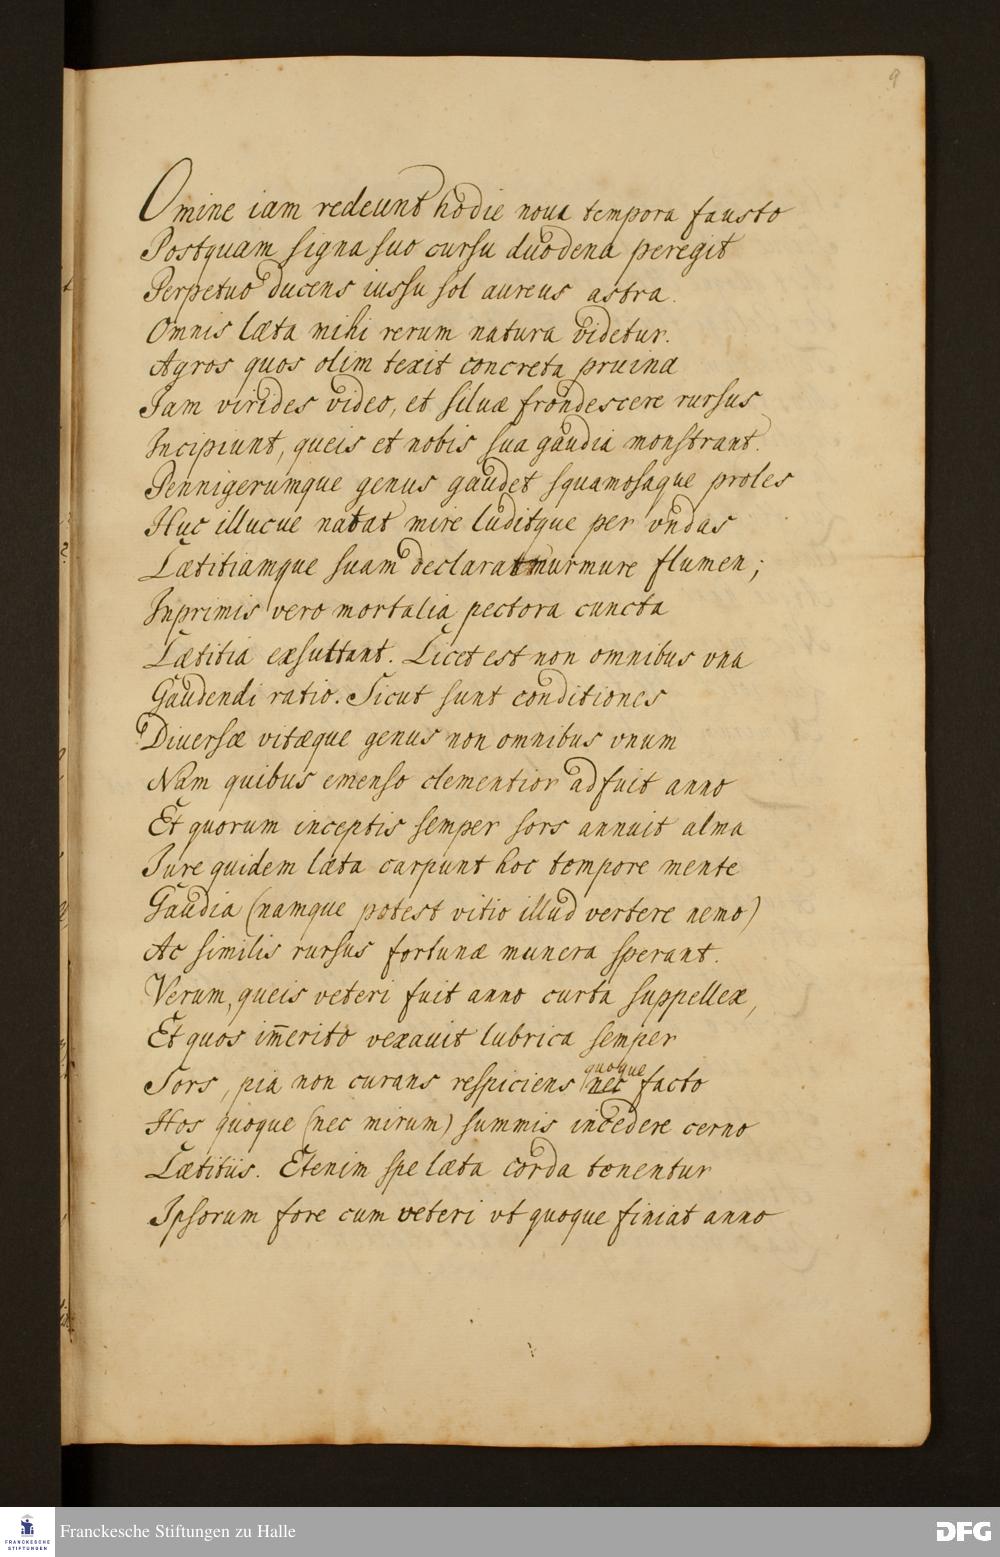 9
Omine iam redeunt hodie noua tempora fausto
Postquam signa suo cursu duodena peregit
Perpetuo ducens iussu sol aureus astra.
Omnis læta mihi rerum natura videtur.
Agros quos olim texit concreta pruina
Jam virides video, et siluæ frondescere rursus
Incipiunt, queis et nobis sua gaudia monstrant.
Pennigerumque genus gaudet squamosaque proles
Huc illucue natat mire luditque per vndas
Lætitiamque suam declarat murmure flumen;
Inprimis vero mortalia pectora cuncta
Lætitia exsultant. Licet est non omnibus vna
Gaudendi ratio. Sicut sunt conditiones
Diuersæ vitæque genus non omnibus vnum
Nam quibus emenso clementior adfuit anno
Et quorum inceptis semper sors annuit alma
Jure quidem læta carpunt hoc tempore mente
Gaudia (namque potest vitio illud vertere nemo)
Ac similis rursus fortunæ munera sperant.
Verum, queis veteri fuit anno curta suppellex,
Et quos im̄erito vexauit lubrica semper
quoque
Sors, pia non curans respiciens nec facto
Hos quoque (nec mirum) summis incedere cerno
Lætitiis. Etenim spe læta corda tenentur
Ipsorum fore cum veteri vt quoque finiat anno
FRANCKESCHE
STIFTUNGEN
Franckesche Stiftungen zu Halle
DFG